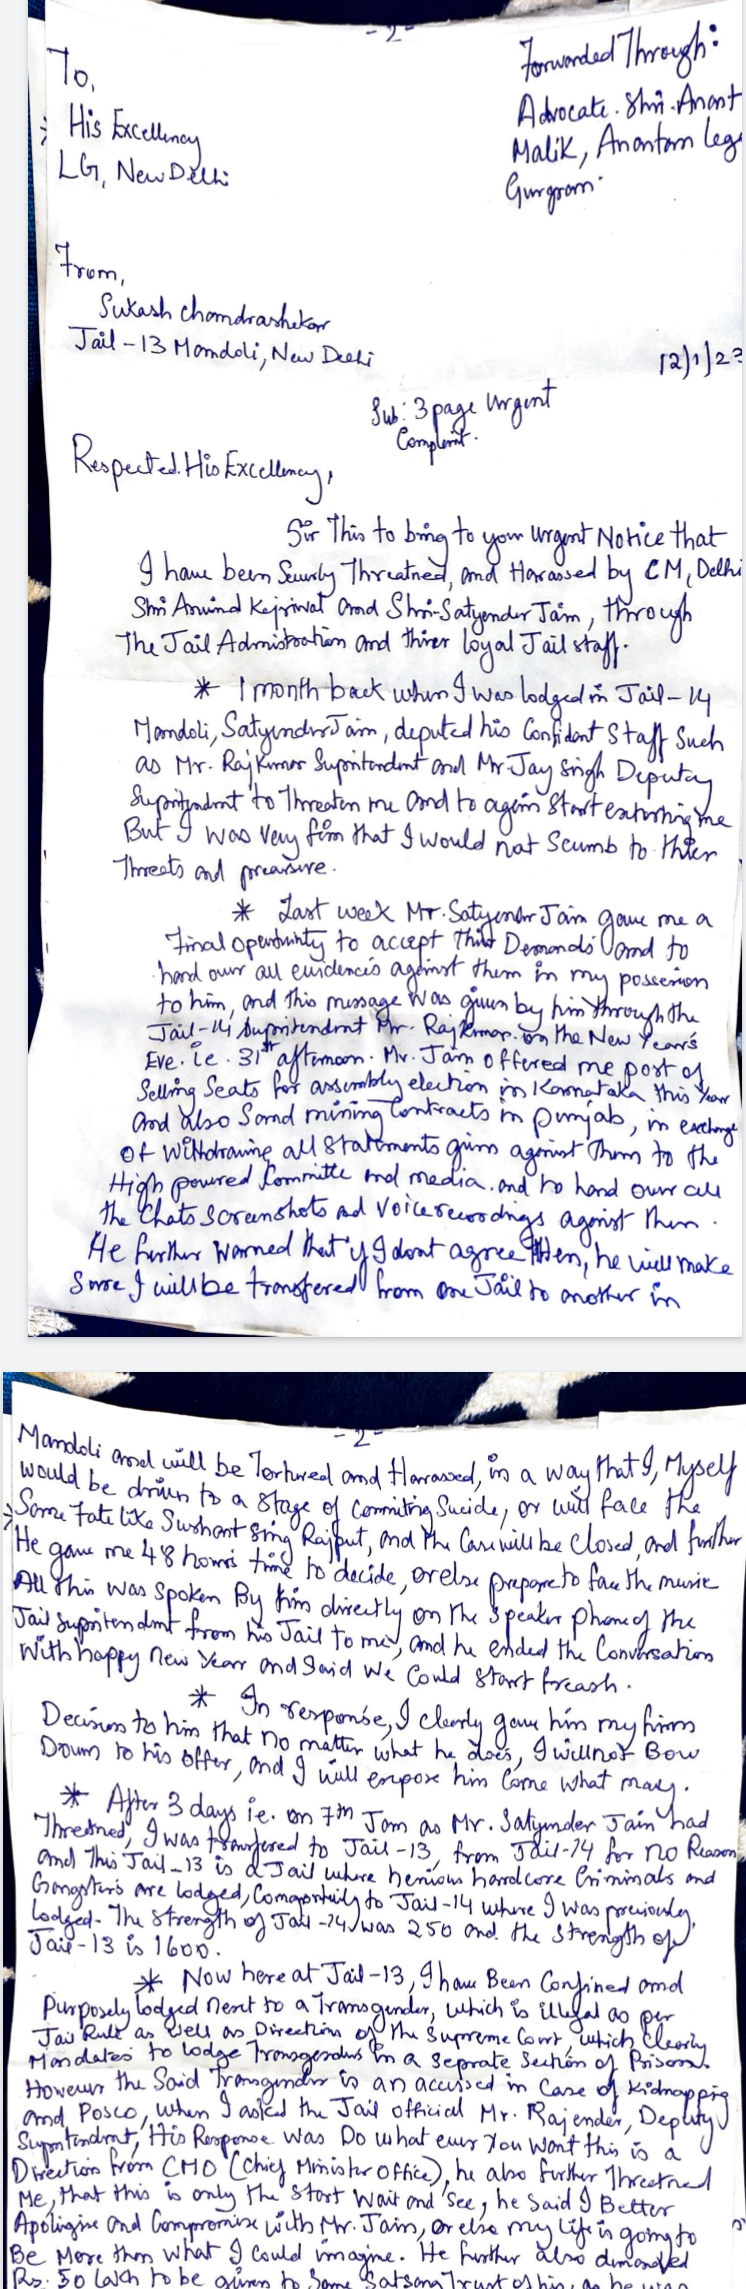 -2-
To,
His Excellency
LG, New Delhi
Forwarded Through:
Advocate. Shri. Anant
Malik, Anantam leg
Gurgram.
From,
Sukash chandrashekar
Jail-13 Mandoli, New Delhi
12/1/23
Sub: 3 page Urgent
Complent.
Respected His Excellency,
Sir This to bring to your Urgent Notice that
I have been Seuerly Threatned, and Harassed by CM, Delhi
Shri Arwind Kejriwal and Shri-Satyender Jain, through
The Jail Admistration and thier loyal Jail staff.
* 1 month back when I was lodged in Jail-14
Mandoli, Satyender Jain, deputed his Confidant Staff Such
as Mr. Raj Kumar Supritendent and Mr. Jay singh Deputy
Supritendent to Threaten me and to again Start extorting me
But I was Very firm that I would not Scumb to thier
Threets and prearsure.
* Last week Mr. Satyender Jain gave me a
final opertunity to accept Thier Demands and to
hand over all evidencis against them in my possesion
to him, and this message was given by him through the
Jail-14 Supritendent Mr. Raj Kumar. on the New Year's
Eve. i.e. 31st afternoon. Mr. Jain offered me post of
Selling Seats for assembly election in Karnataka this Year
and also Sand mining Contracts in punjab, in exchange
of Withdrawing all Statements given against Them to the
High powered Committe and media. and to hand over all
the Chats Screenshots and Voice recordings against Them.
He further Warned that if I dont agree then, he will make
Sure I will be transfered from one Jail to another in
-2-
Mandoli and will be Tortured and Harrassed, in a way that I, Myself
would be driven to a Stage of Commiting Sucide, or will face the
Same Fate like Sushant Sing Rajput, and the Case will be Closed, and further
He gave me 48 hours time to decide, or else prepare to face the music
All this was Spoken By him directly on the Speaker phone of the
Jail Supritendent from his Jail to me, and he ended the Conversation
With happy New Year and Said We Could Start freash.
* In response, I clearly gave him my firm
Decision to him that no matter what he does, I will not Bow
Down to his offer, and I will expose him Come What may.
* After 3 days i.e. on 7th Jan as Mr. Satyender Jain had
Thretned, I was transfered to Jail-13, from Jail-14 for no Reason
and This Jail-13 is a Jail where henious hardcore Criminals and
Gangsters are lodged, Comparitively to Jail-14 where I was previously
lodged. The Strength of Jail-14 was 250 and the Strength of
Jail-13 is 1600.
* Now here at Jail-13, I have Been Confined and
Purposely lodged next to a Transgender, which is illegal as per
Jail Rule as Well as Direction of the Supreme Court, which Clearly
Mandates to lodge Transgenders in a Seprate Section of Prison.
However the Said Transgender is an accussed in Case of Kidnapping
and Posco, When I asked the Jail official Mr. Rajender, Deputy
Supritendent, His Response was Do what ever You Want this is a
Direction from CMO (Chief Minister Office), he also further Thretned
Me, that this is only the Start Wait and See, he Said I Better
Apologise and Compromise with Mr. Jain, or else my life is going to
Be More then what I Could imagine. He further also demanded
Rs. 50 lakh to be given to Some Satsang Trust of his, as he was